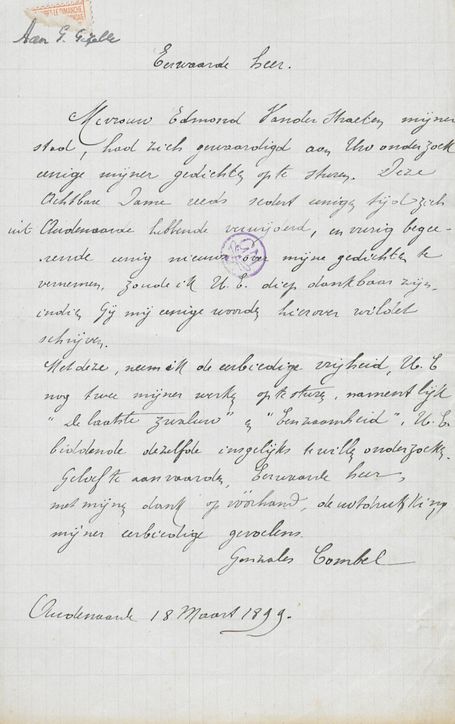 DIMANCHE
Aan G. Gezelle
Eerwaarde heer.
Mevrouw Edmond Vander Straeten mijner
stad, had zich gewaardigd aan Uw onderzoek
eenige mijner gedichten op te sturen. Deze
Achtbare Dame reeds sedert eenigen tijd zich
uit Audenaarde hebbende verwijderd, en vurig begee-
rende eenig nieuws over mijne gedichten te
vernemen, zoude ik U. E. diep dankbaar zijn,
indien Gij mij eenige woorden hierover wildet
schrijven.
Met deze, neem ik de eerbiedige vrijheid, U. E
nog twee mijner werken op te sturen, namentlijk
"De laatste zwaluw" en "Eenzaamheid", U. E.
biddende dezelfde insgelijks te willen onderzoeken.
Gelieft te aanvaarden, Eerwaarde heer,
met mijnen dank op voorhand, de uitdrukking
mijner eerbiedige gevoelens.
Gonzales Combel
Audenaarde 18 Maart 1899.